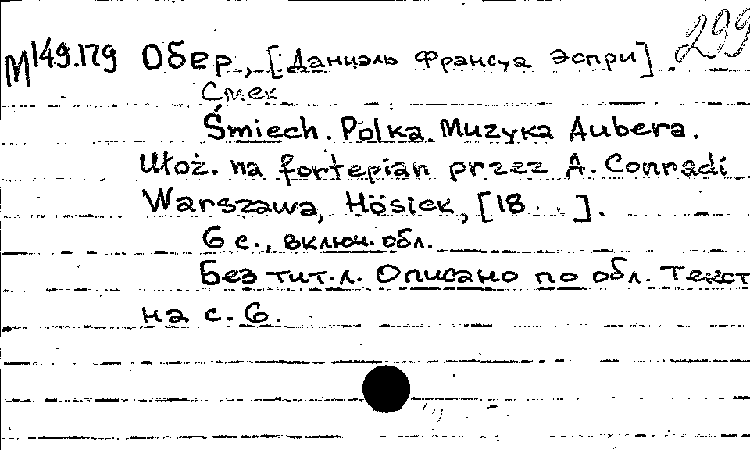 299
М149.179 Обер, [Даниэль Франсуа Эспри].
Смех
Śmiech. Polka. Muzyka Aubera.
Ułoż. na fortepian przez A. Conradi
Warszawa, Hösick, [18 . . ].
6 с., включ. обл.
Без тит. л. Описано по обл. Текст
на с. 6.